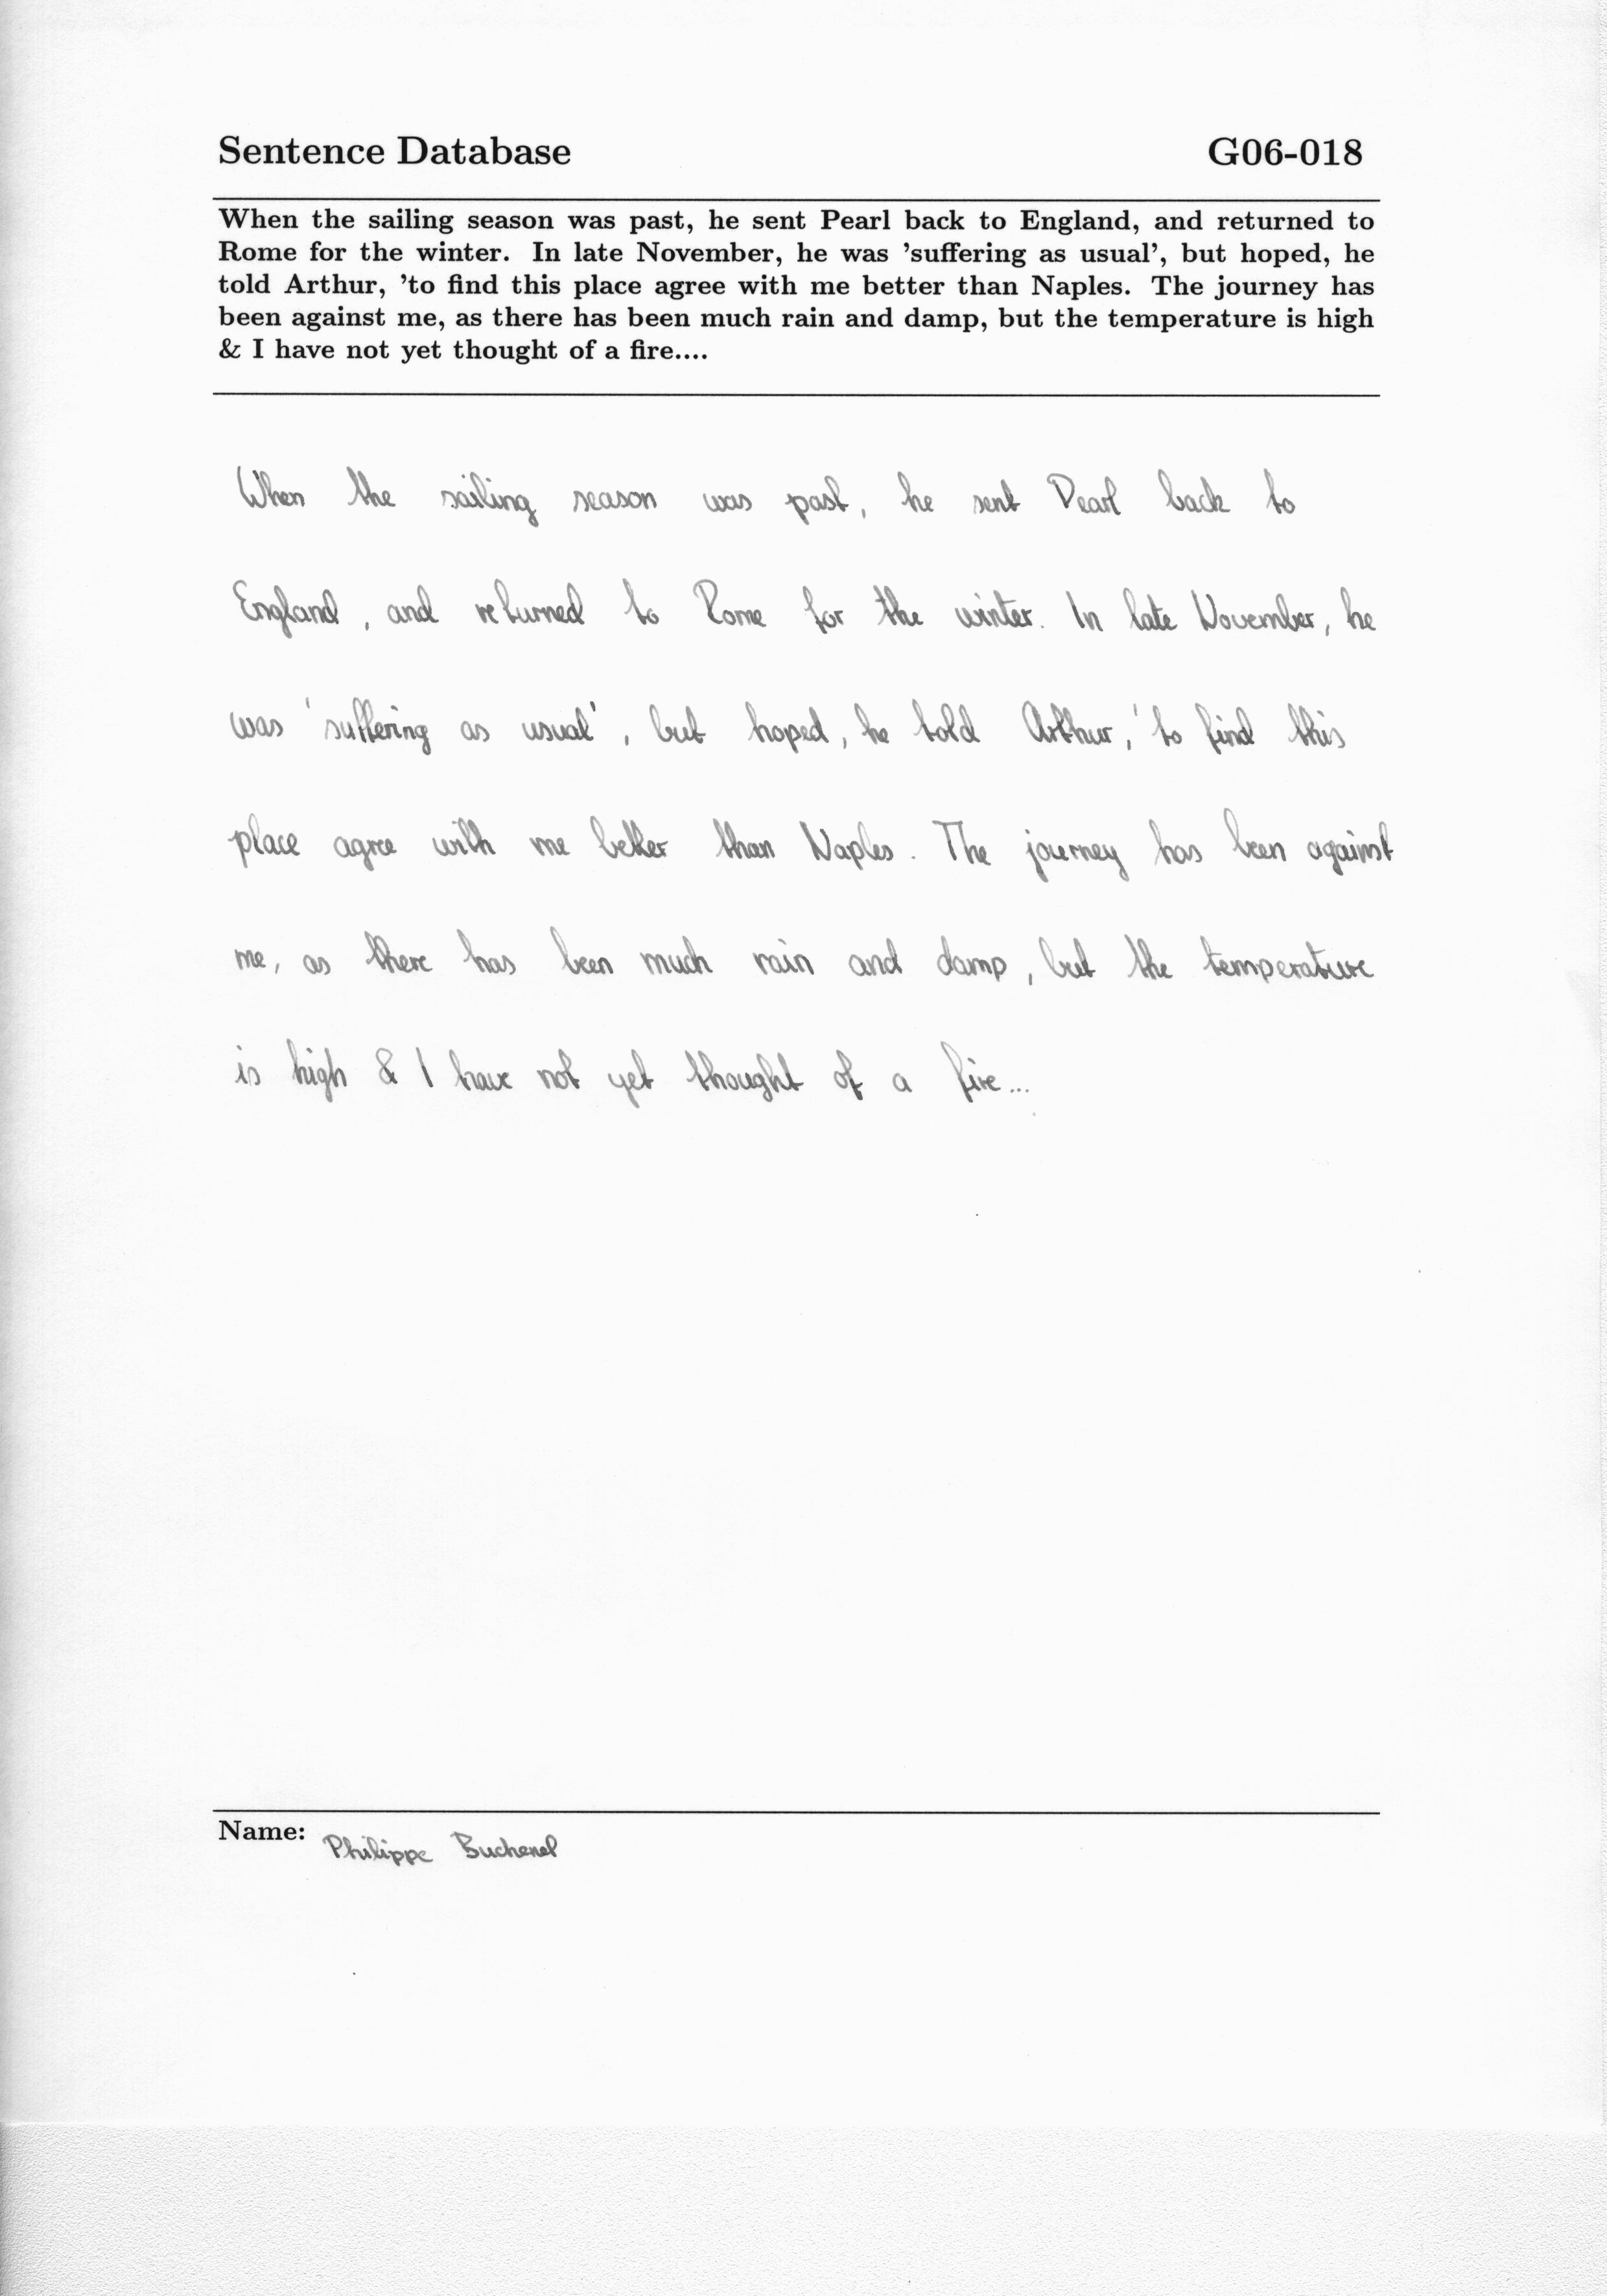 Sentence Database G06-018
When the sailing season was past, he sent Pearl back to England, and returned to
Rome for the winter. In late November, he was 'suffering as usual', but hoped, he
told Arthur, 'to find this place agree with me better than Naples. The journey has
been against me, as there has been much rain and damp, but the temperature is high
& I have not yet thought of a fire....
When the sailing season was past, he sent Pearl back to
England, and returned to Rome for the winter. In late November, he
was 'suffering as usual', but hoped, he told Arthur, 'to find this
place agree with me better than Naples. The journey has been against
me, as there has been much rain and damp, but the temperature
is high & I have not yet thought of a fire...
Name: Philippe Buchenel